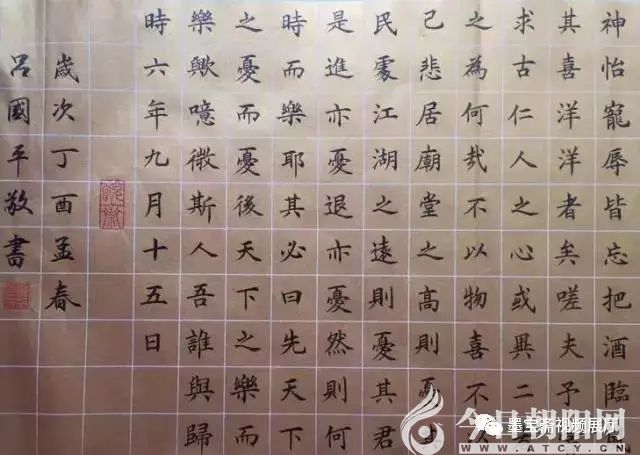 神怡寵辱皆忘把酒臨風
其喜洋洋者矣嗟夫予
求古仁人之心或異二
之為何哉不以物喜不以
己悲居廟堂之高則憂其
民處江湖之遠則憂其君
是進亦憂退亦憂然則何
時而樂耶其必曰先天下
之憂而憂後天下之樂而
樂歟噫微斯人吾誰與歸
時六年九月十五日
歲次丁酉孟春
呂國平敬書
墨宝斋视频展厅
今日朝阳网
WWW.ATCY.CN